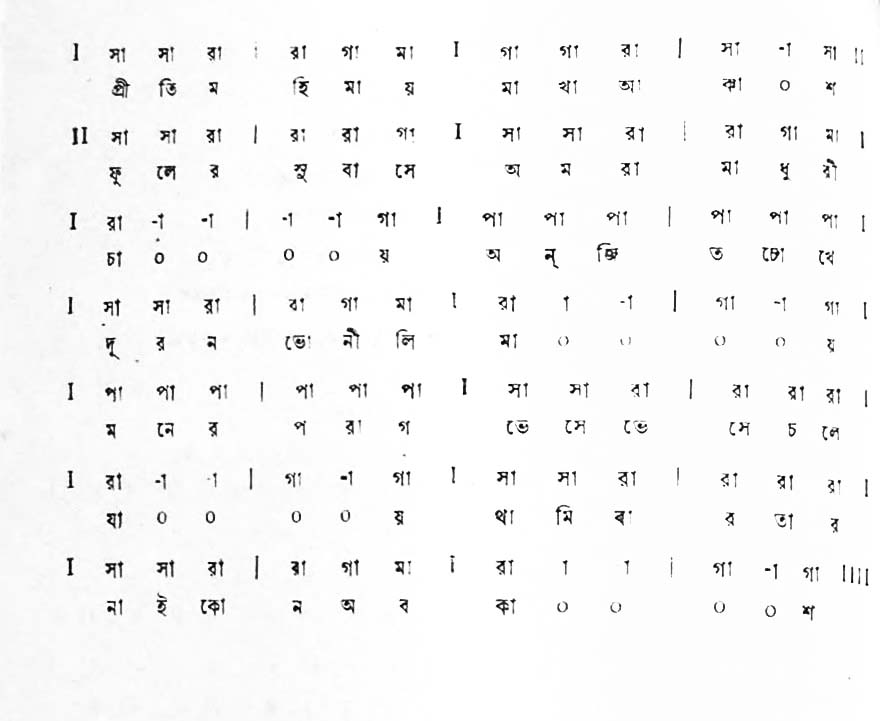 I সা সা রা | রা গা মা I গা গা রা | সা -া সা II
প্রী তি ম হি মা য় মা খা আ কা ০ শ
II সা সা রা | রা রা গা I সা সা রা | রা গা মা I
ফু লে র সু বা সে অ ম রা মা ধু রী
I রা -া -া | -া -া গা I পা পা পা | পা পা পা I
চা ০ ০ ০ ০ য় অ ন্ জি ত চো খে
I সা সা রা | রা গা মা I রা া -া | গা -া গা I
দূ র ন ভো নী লি মা ০ ০ ০ ০ য়
I পা পা পা | পা পা পা I সা সা রা | রা রা রা I
ম নে র প রা গ ভে সে ভে সে চ লে
I রা -া -া | গা -া গা I সা সা রা | রা রা রা I
যা ০ ০ ০ ০ য় থা মি বা র তা র
I সা সা রা | রা গা মা I রা া া | গা -া গা IIII
না ই কো ন অ ব কা ০ ০ ০ ০ শ